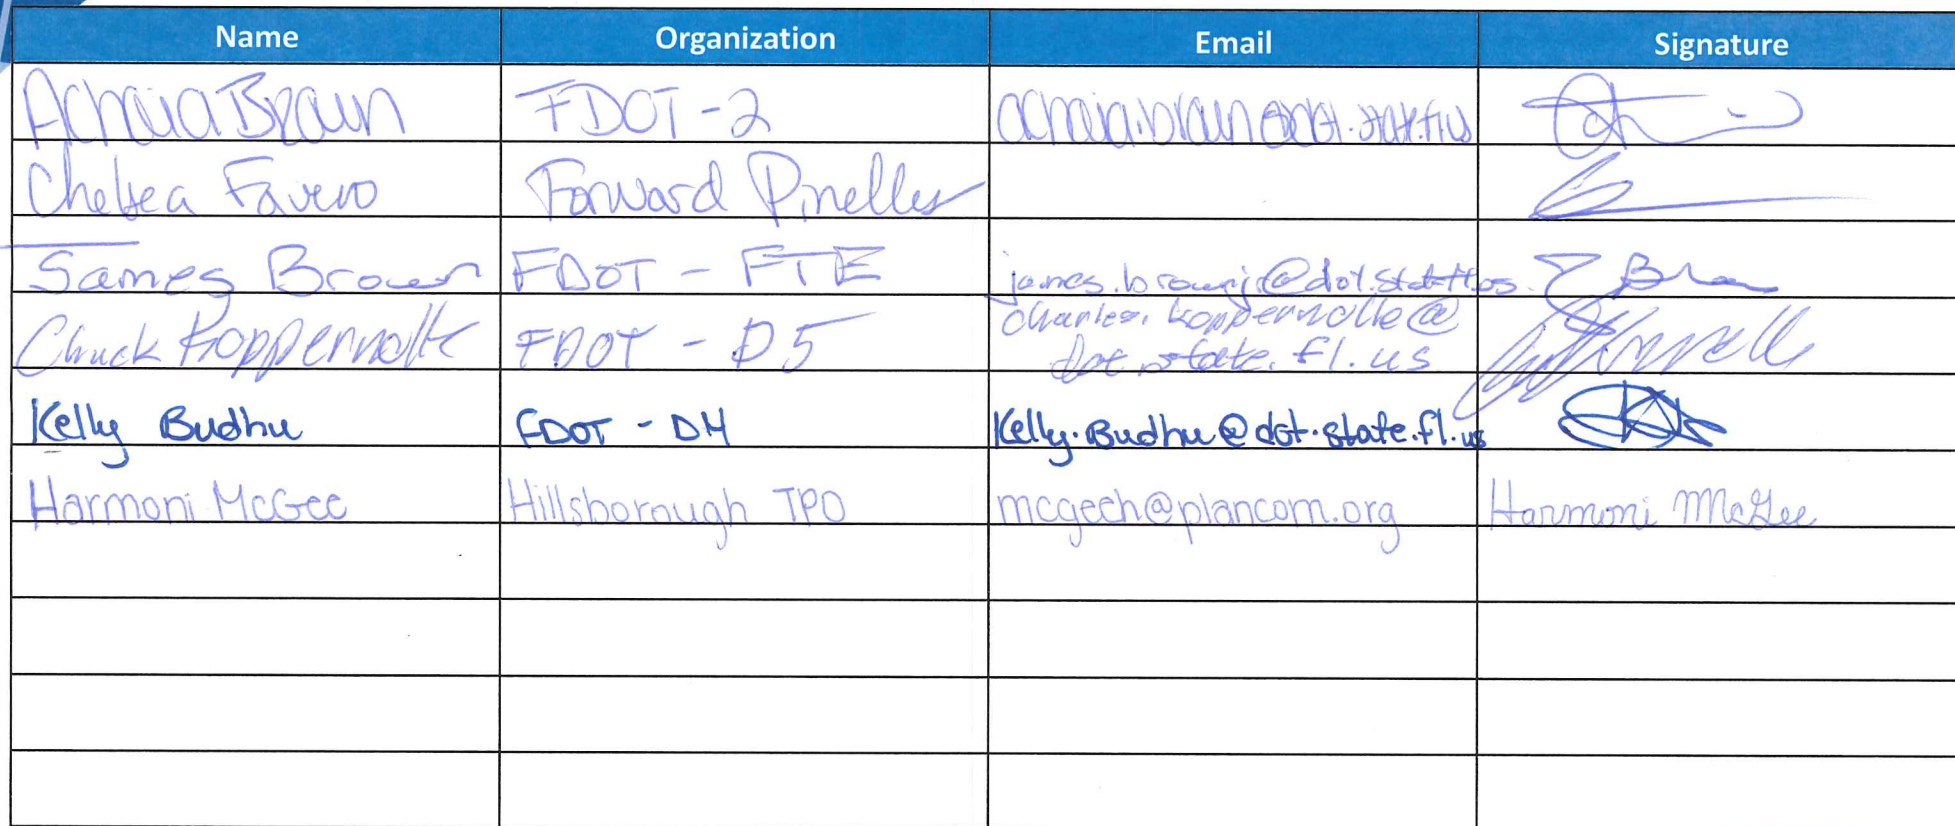 Name Organization Email Signature
Achaia Brown FDOT-2 achaia.brown@dot.state.fl.us
Chelsea Favero Forward Pinellas
James Brown FDOT - FTE james.brownjr@dot.state.fl.us. J Br
Chuck Koppernolle FDOT - D5 charles.koppernolle@
dot.state.fl.us
Kelly Budhu FDOT - D4 Kelly.Budhu@dot.state.fl.us
Harmoni McGee Hillsborough TPO mcgeeh@plancom.org Harmoni McGee